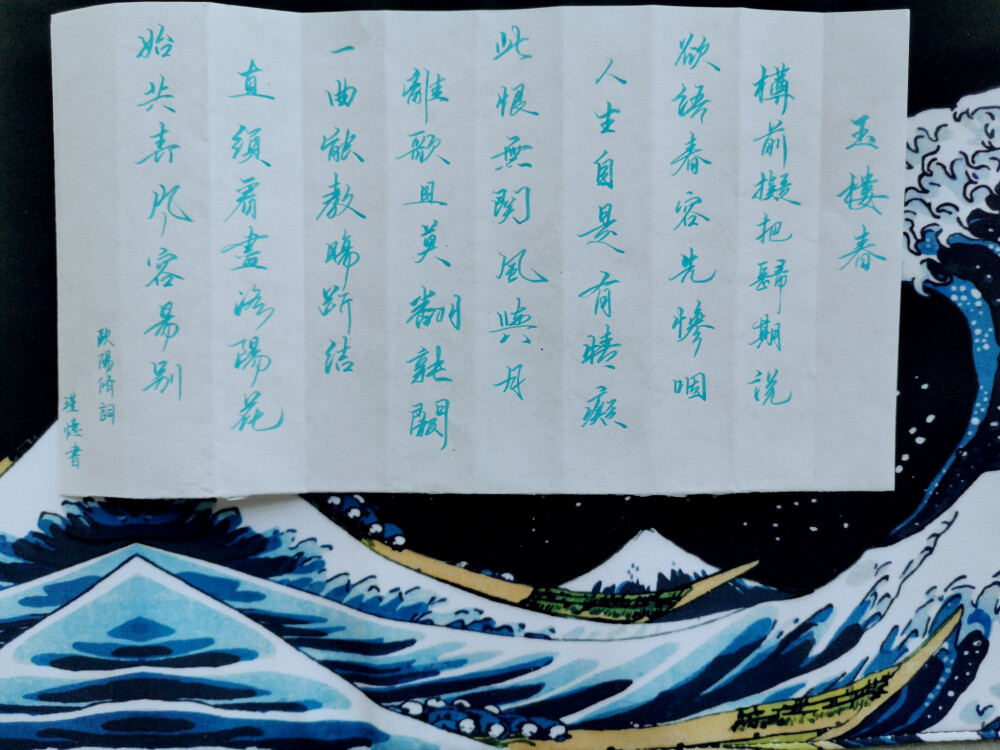 玉樓春
樽前擬把歸期説
欲語春容先慘咽
人生自是有情癡
此恨無関風與月
離歌且莫翻新闋
一曲能教腸斷結
直須看盡洛陽花
始共春風容易别
歐陽脩詞
瑾憶書